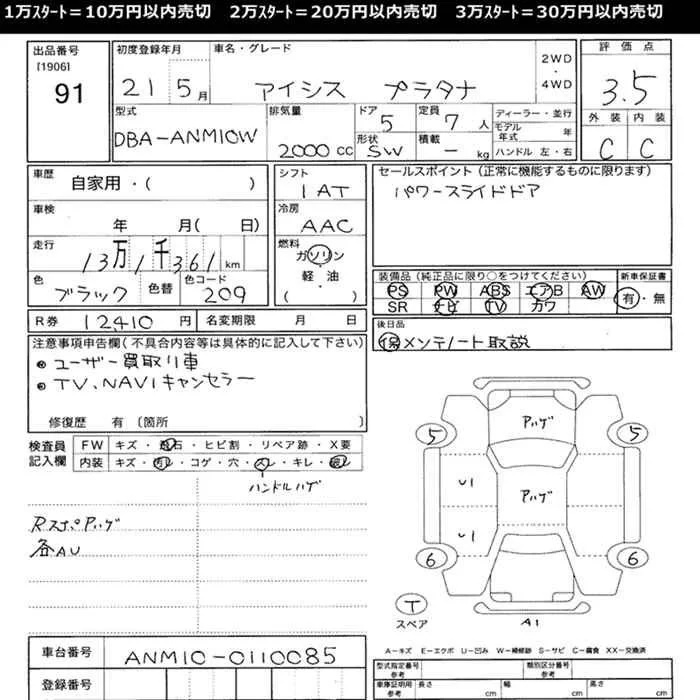 1万ｽﾀｰﾄ＝10万円以内売切 2万ｽﾀｰﾄ＝20万円以内売切 3万ｽﾀｰﾄ＝30万円以内売切
出品番号
[1906]
91
初度登録年月
21 5月
車名・グレード
アイシス プラタナ
2WD
・
4WD
評価点
3.5
外装 内装
C C
型式
DBA-ANM10W
排気量
2000 cc
ドア
5
形状
SW
定員
7 人
積載
- kg
ディーラー・並行
モデル年式 年
ハンドル 左・右
車歴
自家用・( )
車検
年 月( 日)
走行
13万1千361 km
色
ブラック
色替
色コード
209
シフト
1AT
冷房
AAC
燃料
ガソリン
・
軽・油
( )
セールスポイント（正常に機能するものに限ります）
パワースライドドア
装備品（純正品に限り○をつけてください）
PS PW ABS エアB AW
SR ナビ TV カワ
新車保証書
有・無
R券 12410 円
名変期限 月 日
後日品
保メンテノート取説
注意事項申告欄（不具合内容等は具体的に記入して下さい）
ユーザー買取り車
TV、NAVIキャンセラー
修復歴 有〔箇所 〕
検査員
記入欄
FW キズ・飛石・ヒビ割・リペア跡・X要
内装 キズ・汚レ・コゲ・穴・スレ・キレ・
ハンドルハゲ
RスポPハゲ
各AU
5 5
6 6
Pハゲ
Pハゲ
U1
U1
T
スペア
A1
A－キズ E－エクボ U－凹み W－補修跡 S－サビ C－腐食 XX－交換済
車台番号
ANM10-0110085
登録番号
型式指定番号
参考
類別区分番号
参考
車庫証明用
参考
長さ cm
幅 cm
高さ cm